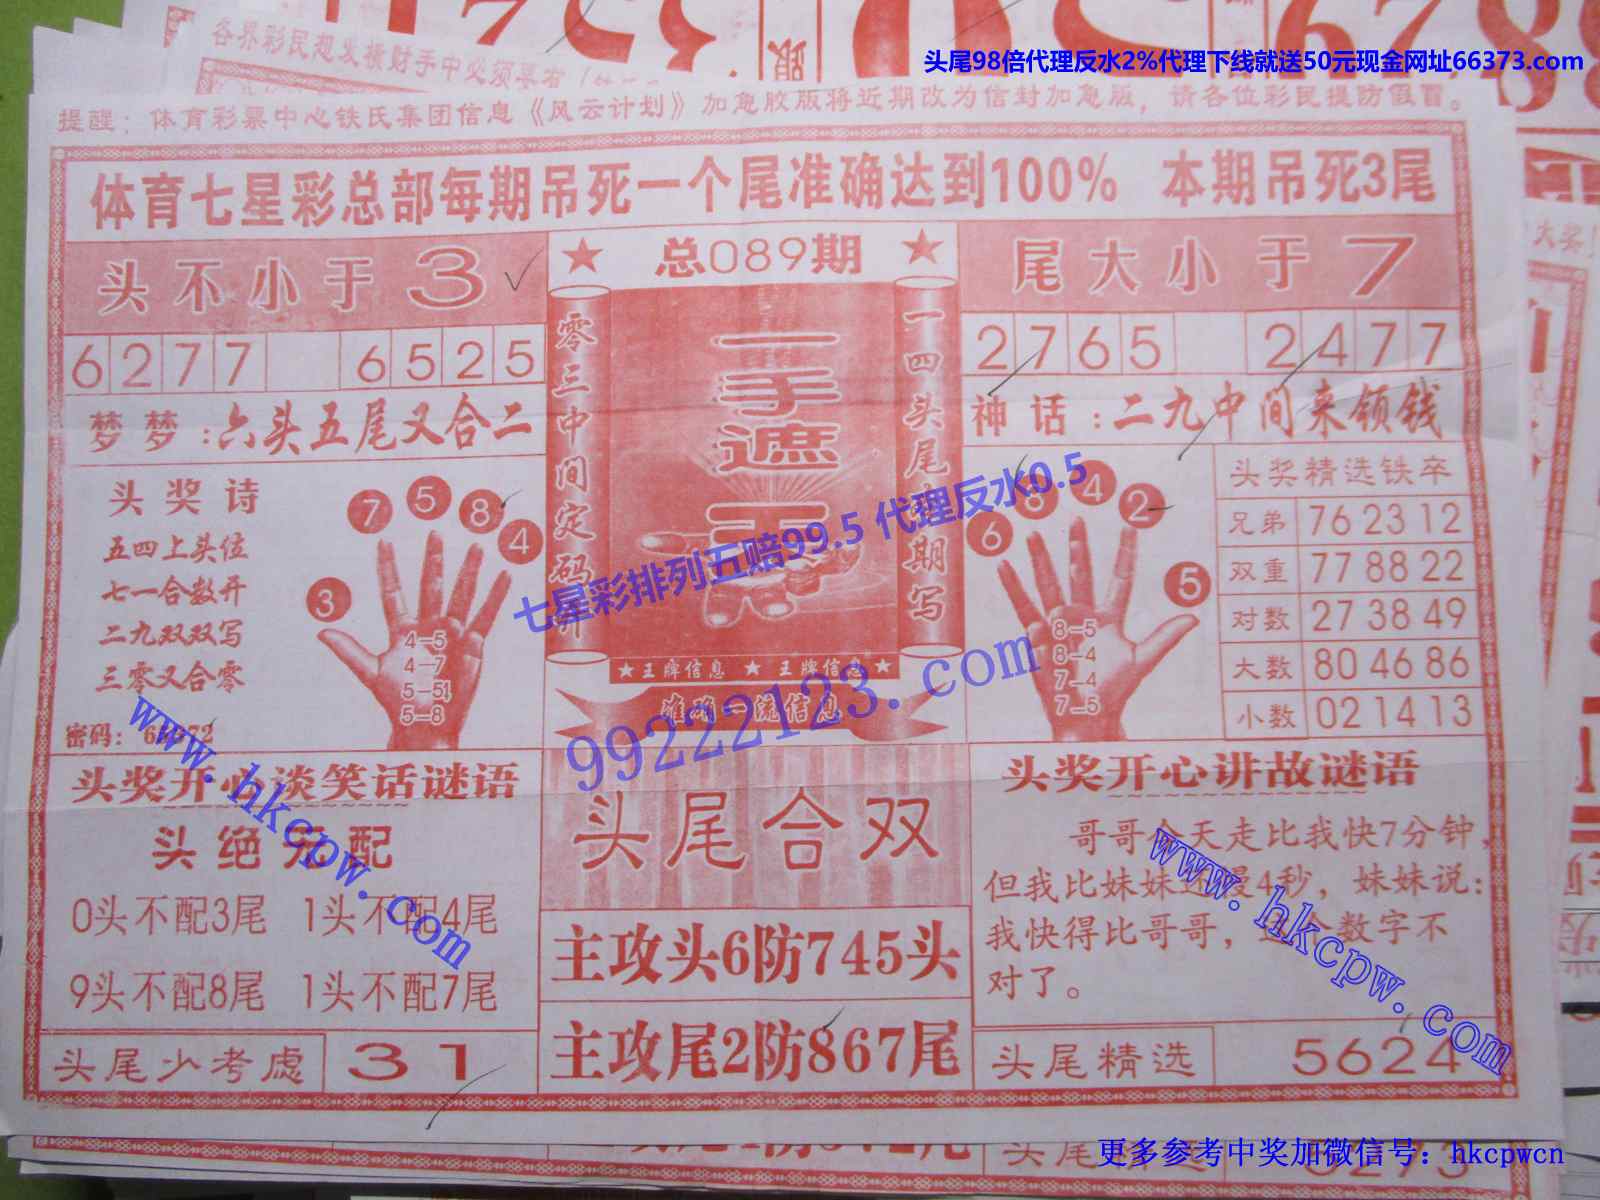 各界彩民想发横财手中必须要有
头尾98倍代理反水2%代理下线就送50元现金网址66373.com
提醒：体育彩票中心铁氏集团信息《风云计划》加急胶版将近期改为信封加急版，请各位彩民提防假冒。
体育七星彩总部每期吊死一个尾准确达到100% 本期吊死3尾
头不小于3
★ 总089期 ★
尾大小于7
6277 6525
2765 2477
梦梦：六头五尾又合二
神话：二九中间来领钱
零三中间定码
一手遮天
一四头尾 期写
头奖诗
五四上头位
七一合数开
二九双双写
三零又合零
密码：6 72
3 7 5 8 4
4-5
4-7
5-5
5-8
★王牌信息 ★ 王牌信息★
准确一流信息
6 8 4 2 5
8-5
8-4
7-4
7-5
头奖精选铁卒
兄弟 76 23 12
双重 77 88 22
对数 27 38 49
大数 80 46 86
小数 02 14 13
七星彩排列五赔99.5 代理反水0.5
99222123.com
www.hkcpw.com
www.hkcpw.com
头奖开心谈笑话谜语
头绝无配
0头不配3尾 1头不配4尾
9头不配8尾 1头不配7尾
头尾少考虑 31
头尾合双
主攻头6防745头
主攻尾2防867尾
头奖开心讲故谜语
哥哥今天走比我快7分钟，
但我比妹妹还慢4秒，妹妹说：
我快得比哥哥， 个数字不
对了。
头尾精选 5624
更多参考中奖加微信号：hkcpwcn